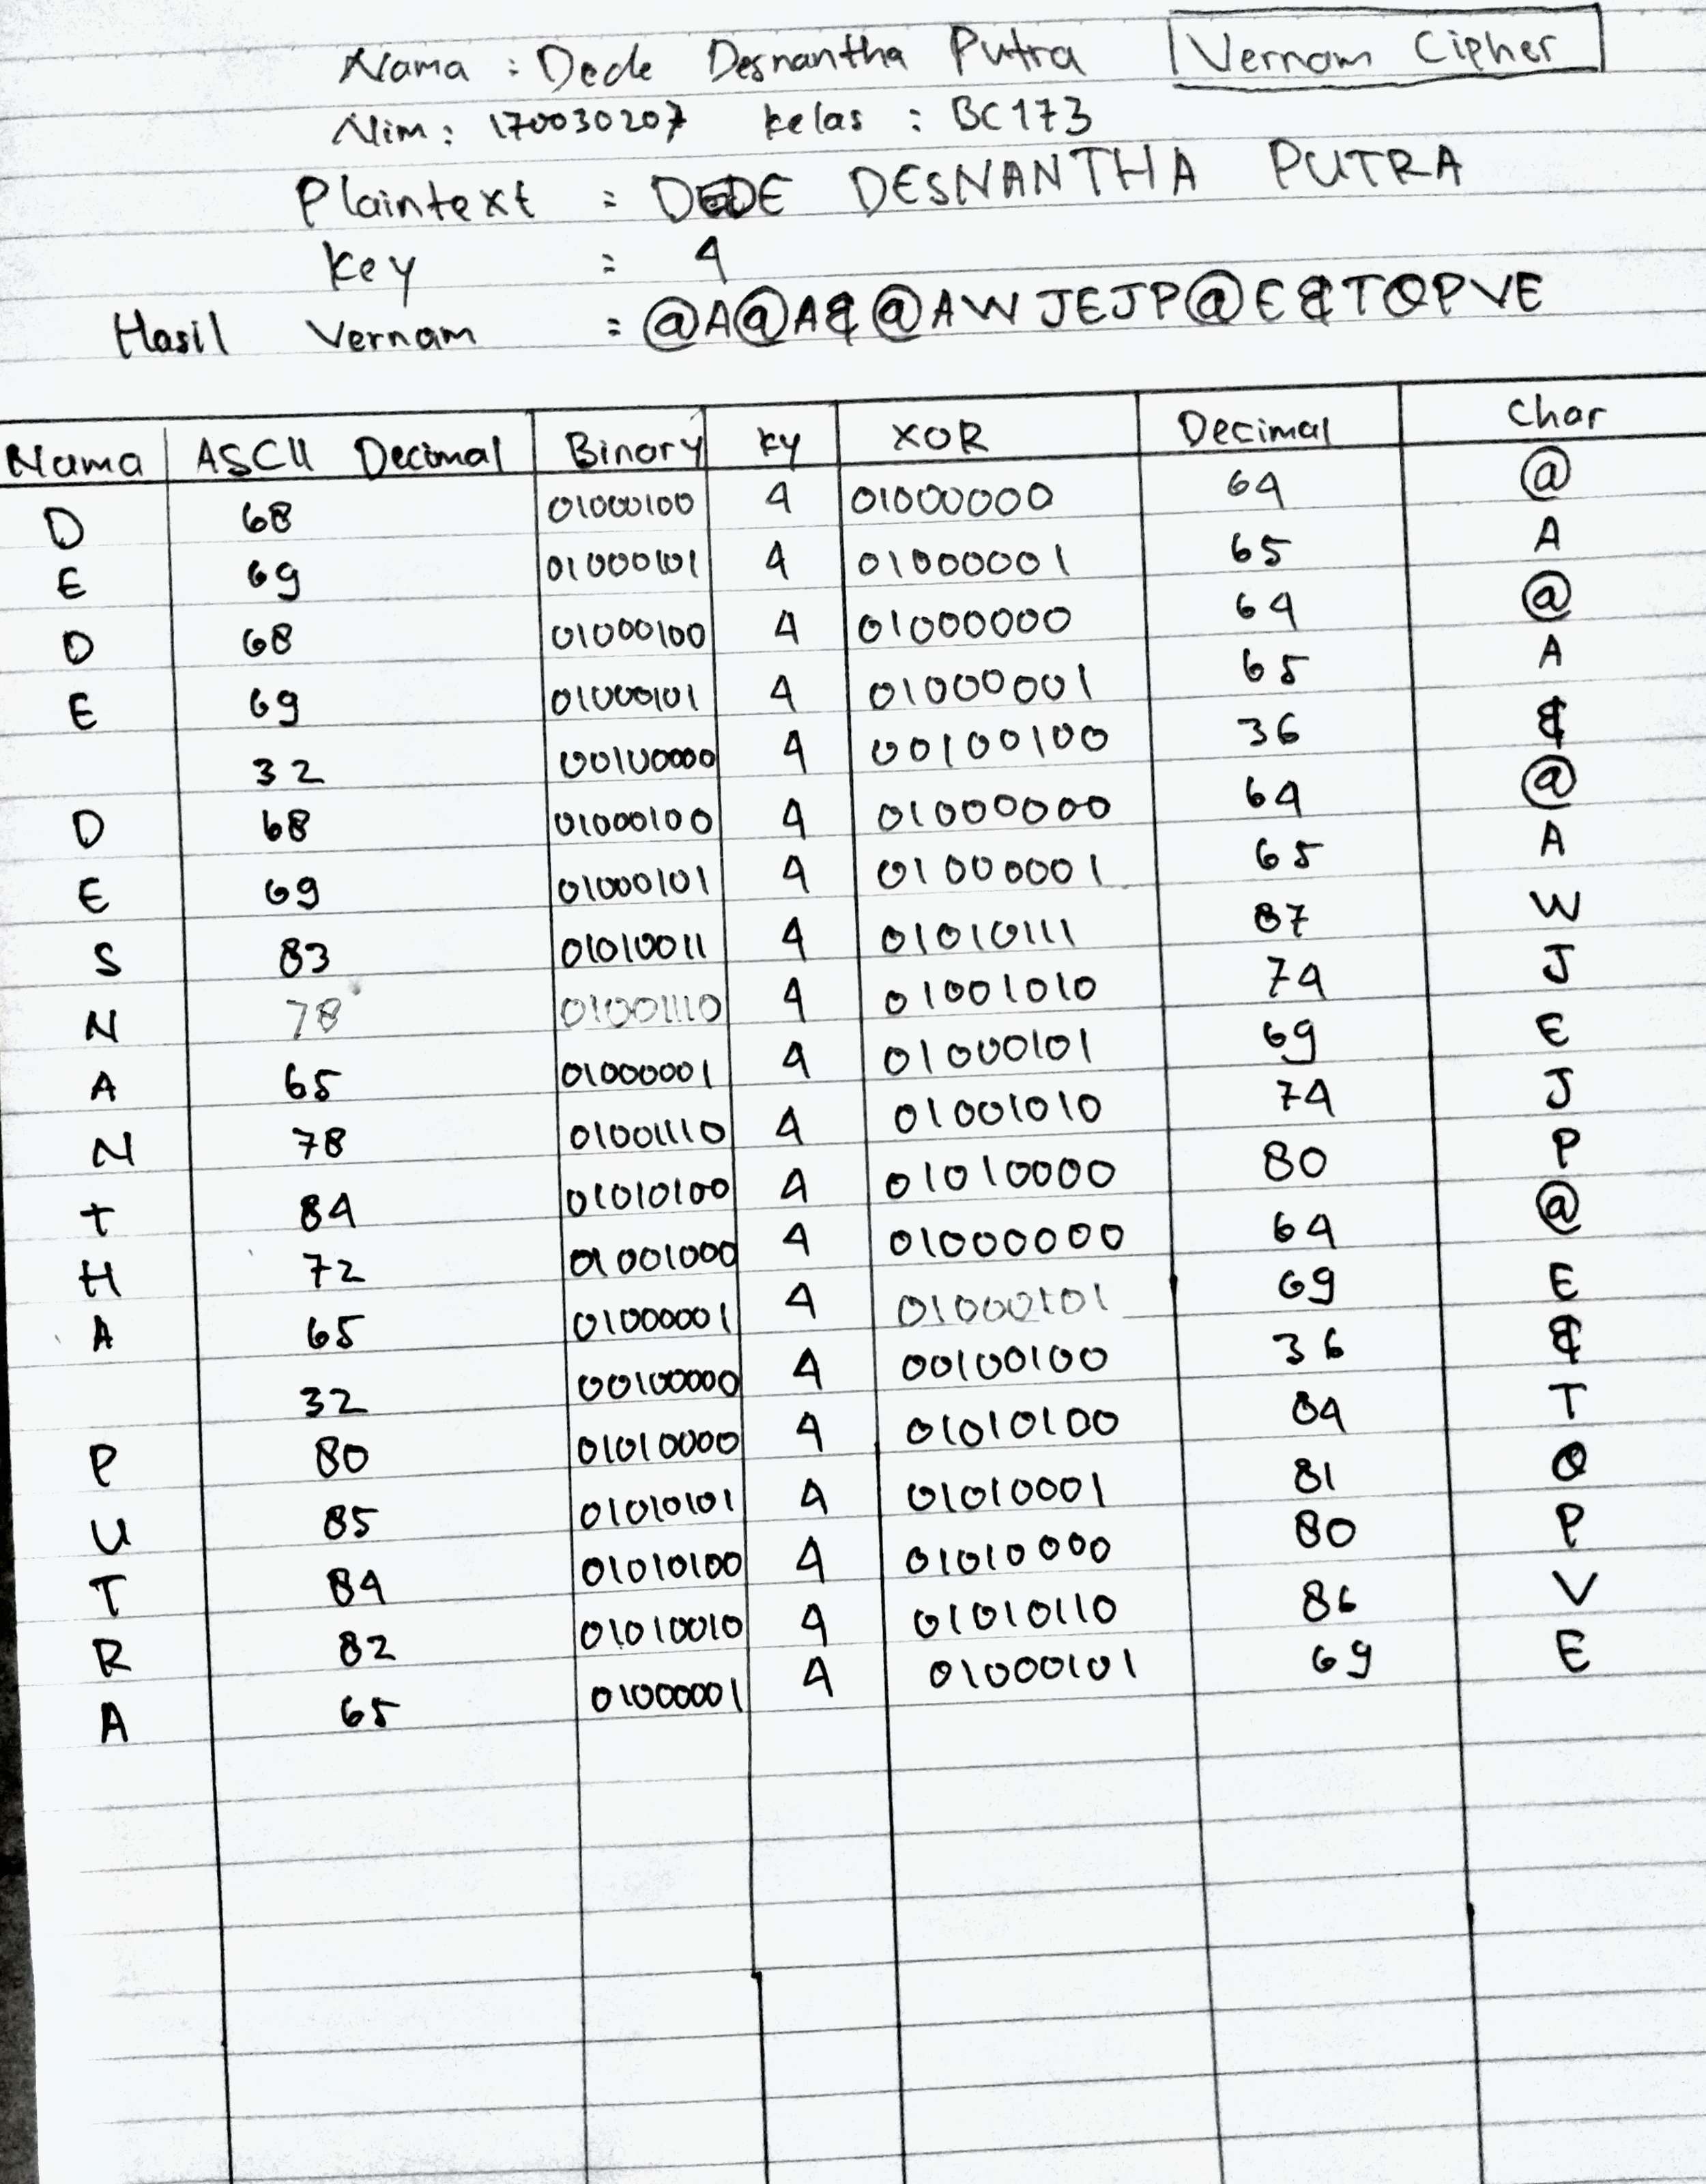 Nama : Dede Desnantha Putra Vernam Cipher
Nim : 170030207 kelas : BC173
Plaintext : DEDE DESNANTHA PUTRA
key : 4
Hasil Vernam : @A@A&@AWJEJP@E&TQPVE
Nama ASCII Decimal Binary ky XOR Decimal Char
D 68 01000100 4 01000000 64 @
E 69 01000101 4 01000001 65 A
D 68 01000100 4 01000000 64 @
E 69 01000101 4 01000001 65 A
32 00100000 4 00100100 36 &
D 68 01000100 4 01000000 64 @
E 69 01000101 4 01000001 65 A
S 83 01010011 4 01010111 87 W
N 78 01001110 4 01001010 74 J
A 65 01000001 4 01000101 69 E
N 78 01001110 4 01001010 74 J
T 84 01010100 4 01010000 80 P
H 72 01001000 4 01000000 64 @
A 65 01000001 4 01000101 69 E
32 00100000 4 00100100 36 &
P 80 01010000 4 01010100 84 T
U 85 01010101 4 01010001 81 Q
T 84 01010100 4 01010000 80 P
R 82 01010010 4 01010110 86 V
A 65 01000001 4 01000101 69 E